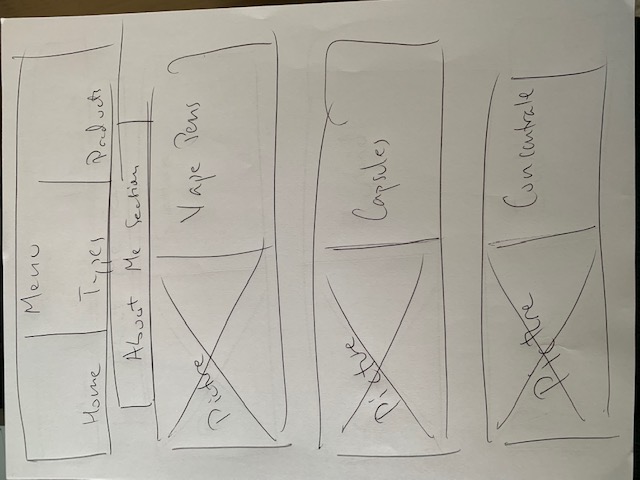 Menu
Home Types Products
About Me Section
Picture Vape Pens
Picture Capsules
Picture Concentrate